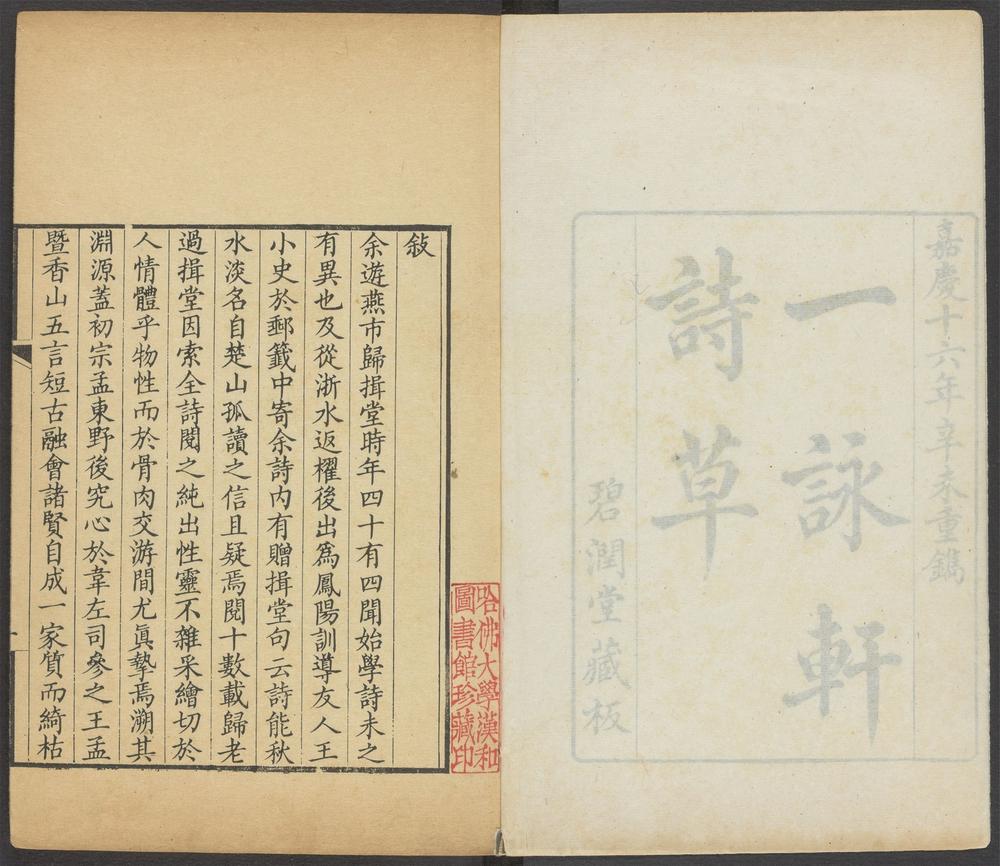 嘉慶十六年辛未重鐫
一詠軒
詩草
碧潤堂藏板
哈佛大學漢和
圖書館珍藏印
敍
余遊燕市歸揖堂時年四十有四聞始學詩未之
有異也及從浙水返櫂後出爲鳳陽訓導友人王
小史於郵籖中寄余詩內有贈揖堂句云詩能秋
水淡名自楚山孤讀之信且疑焉閱十數載歸老
過揖堂因索全詩閱之純出性靈不雜采繪切於
人情體乎物性而於骨肉交游間尤眞摯焉溯其
淵源蓋初宗孟東野後究心於韋左司參之王孟
暨香山五言短古融會諸賢自成一家質而綺枯
一